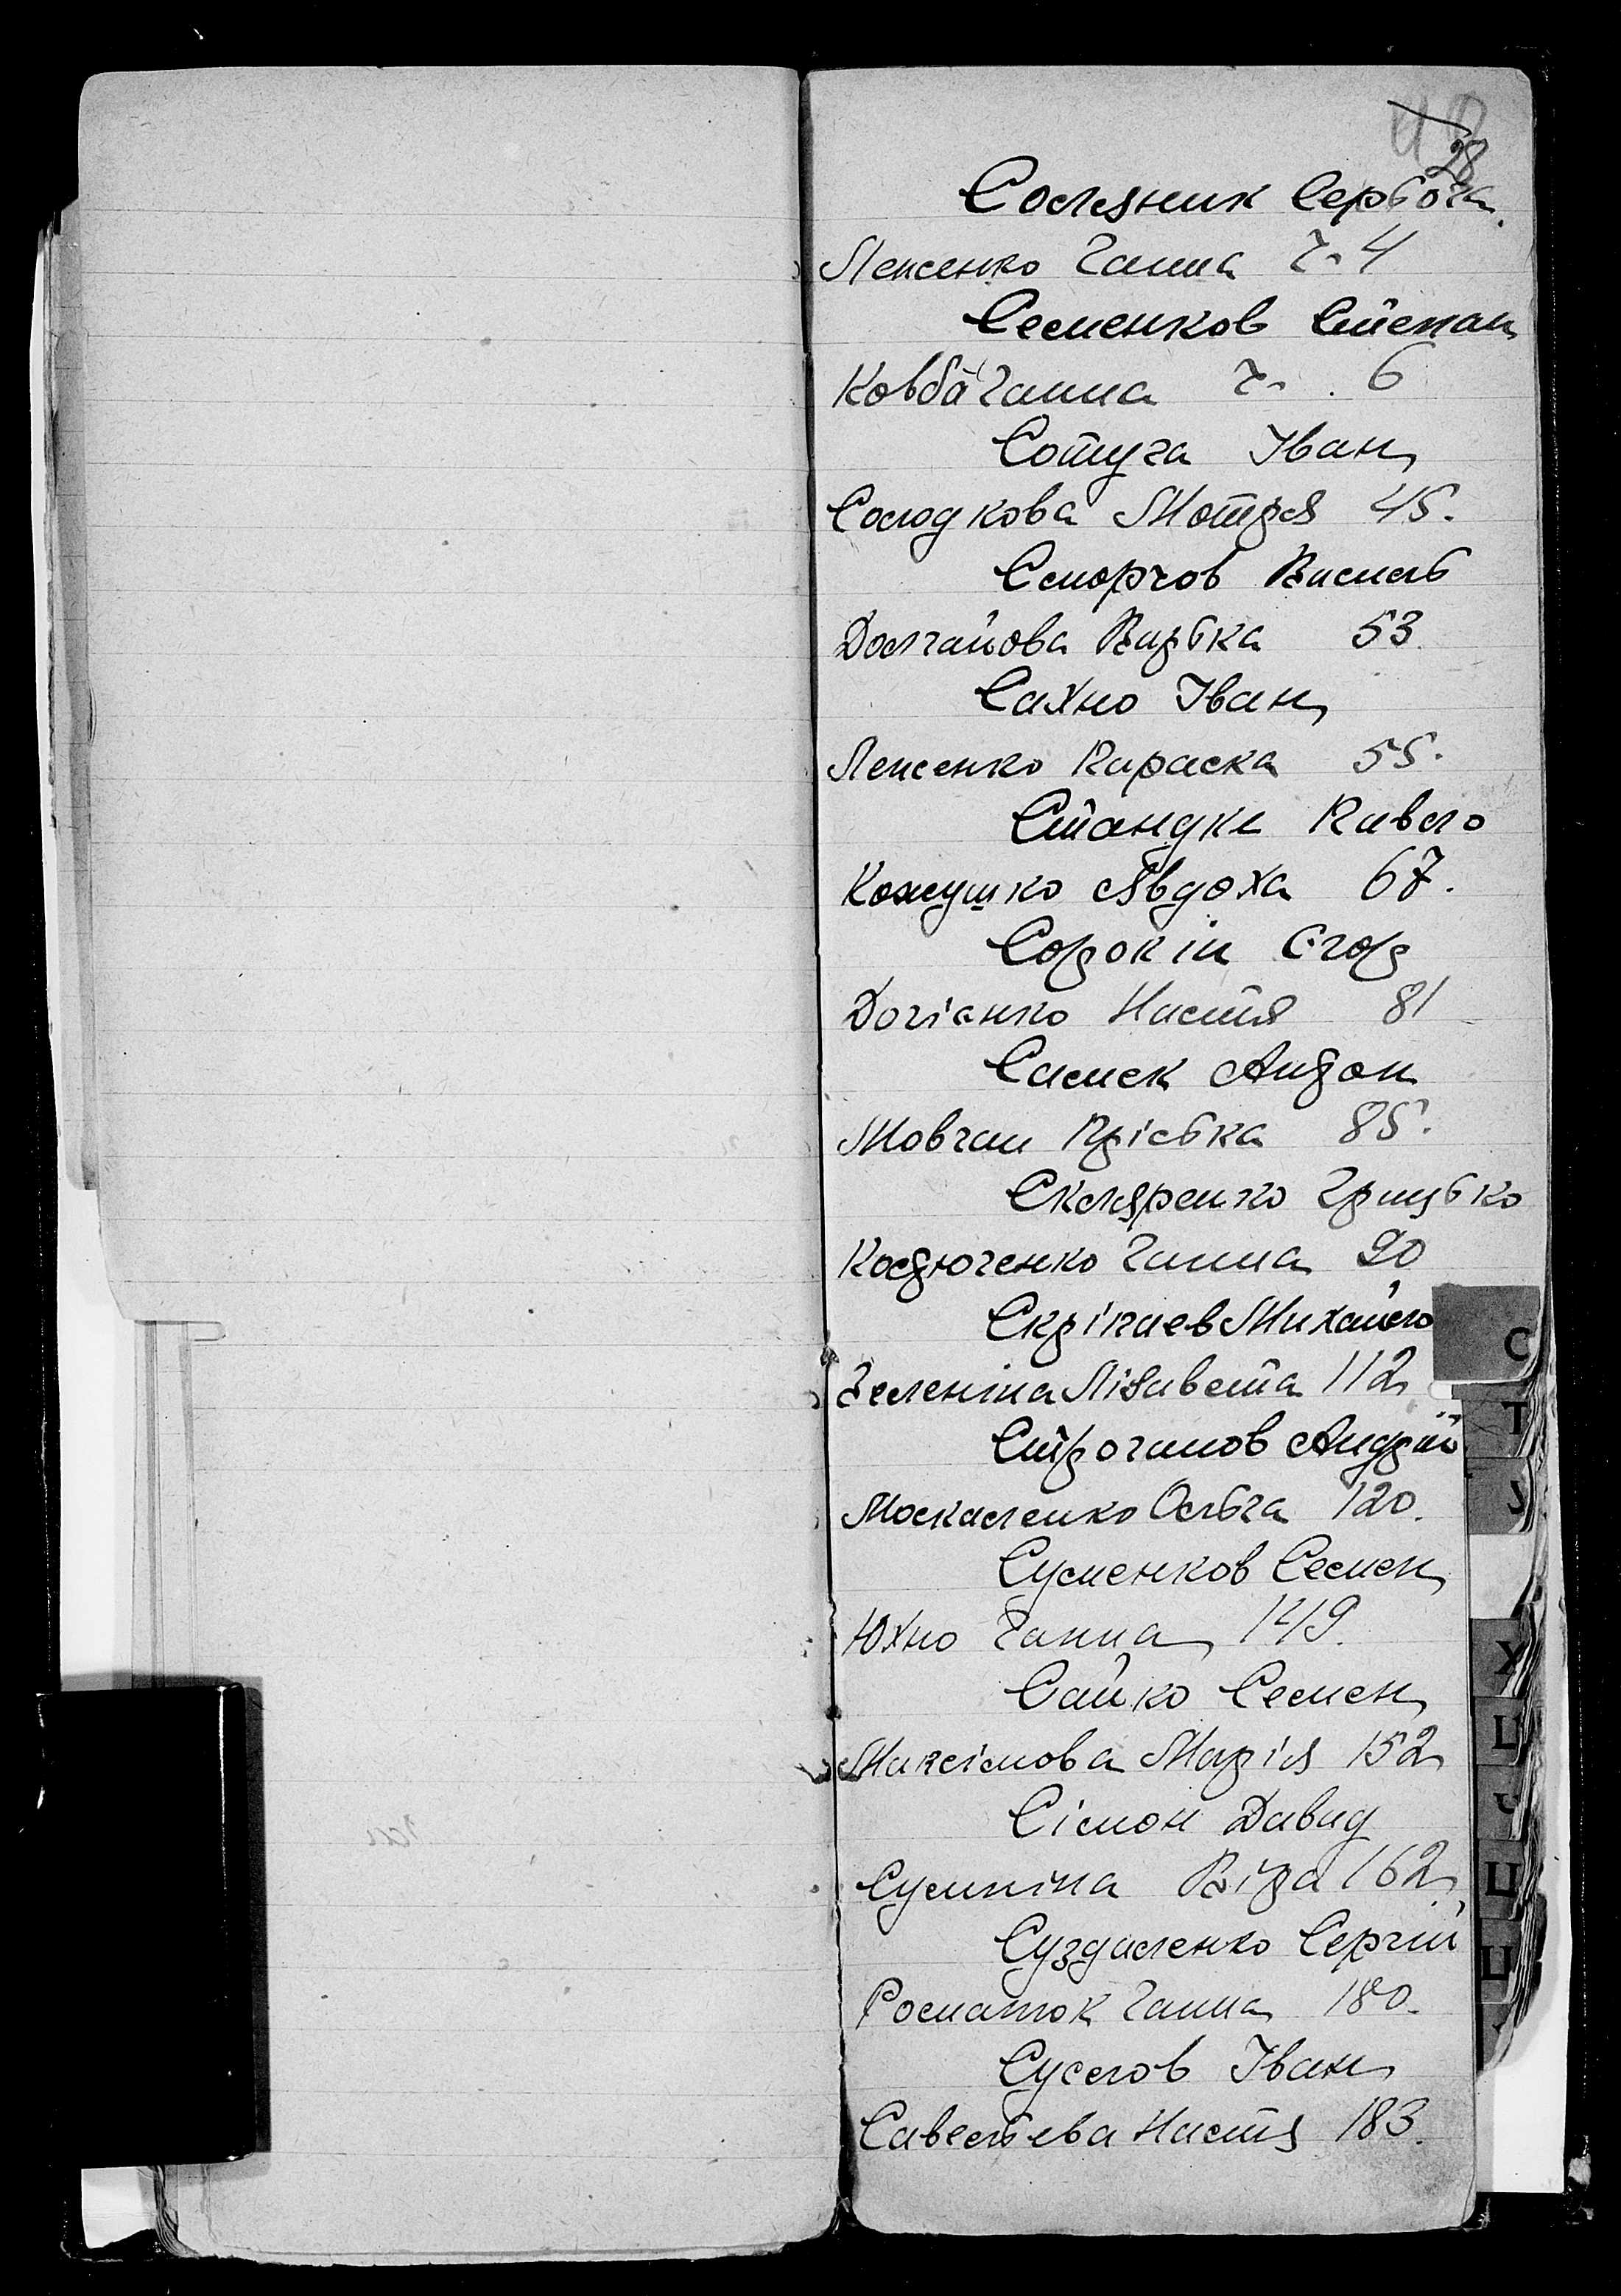 28
Соляник Серьога.
Леженко Ганна ч. 4
Семенков Степан
Ковба Ганна ч. 6
Сотуга Іван
Солодкова Мотря 45.
Сморчов Василь
Долгайова Варька 53.
Сахно Іван
Леженко Параска 55.
Стандке Павло
Кожушко Явдоха 67.
Сорокін Єгор
Догіанко Настя 81
Самек Андон
Мовчан Пріська 85.
Скляренко Грицько
Костюченко Ганна 90
Скріпаев Михайло
Зеленіна Лізавета 112
Строганов Андрій
Москаленко Ольга 120.
Суменков Семен
Юхно Ганна 149.
Сайко Семен
Максімова Марія 152
Сімон Давид
Сумніна Віра 162
Суздаленко Сергій
Росматок Ганна 180.
Суслов Іван
Савельева Настя 183.
С
Т
У
Х
Ц
Ч